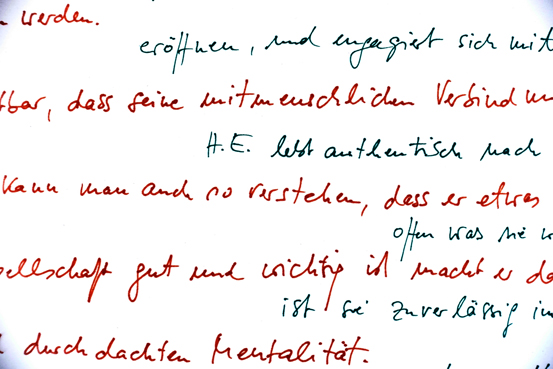 werden.
eröffnen, und engagiert sich mit
bar, dass seine mitmenschlichen Verbind
H.E. lebt authentisch nach
kann man auch so verstehen, dass er etwas
offen was sie
ellschaft gut und wichtig ist macht er da
ist sie zuverlässig in
durchdachten Mentalität.